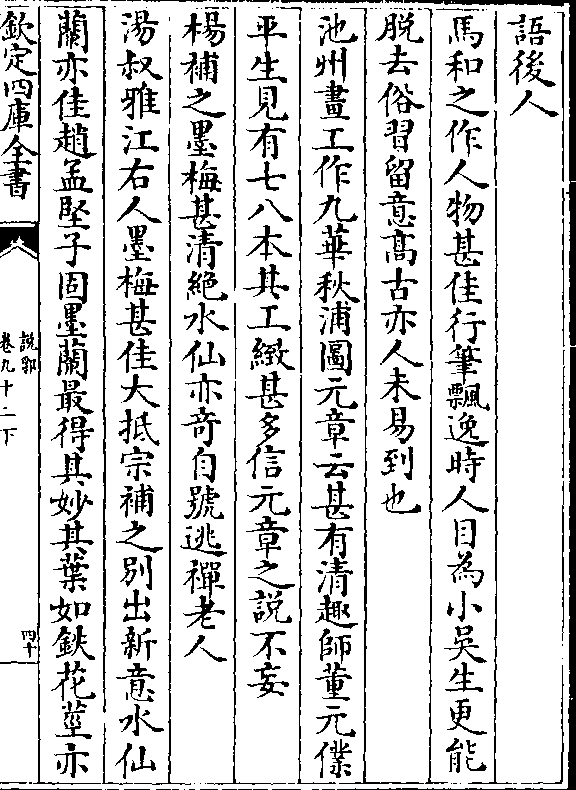 語後人
馬和之作人物甚佳行筆飄逸時人目為小吳生更能
脱去俗習留意髙古亦人未易到也
池州畫工作九華秋浦圖元章云甚有清趣師董元僕
平生見有七八本其工緻甚多信元章之説不妄
楊補之墨梅甚清絶水仙亦竒自號逃禪老人
湯叔雅江右人墨梅甚佳大抵宗補之別出新意水仙
蘭亦佳趙孟堅子固墨蘭最得其妙其葉如鉄花莖亦
欽定四庫全書
說郛
卷九十二下
四十